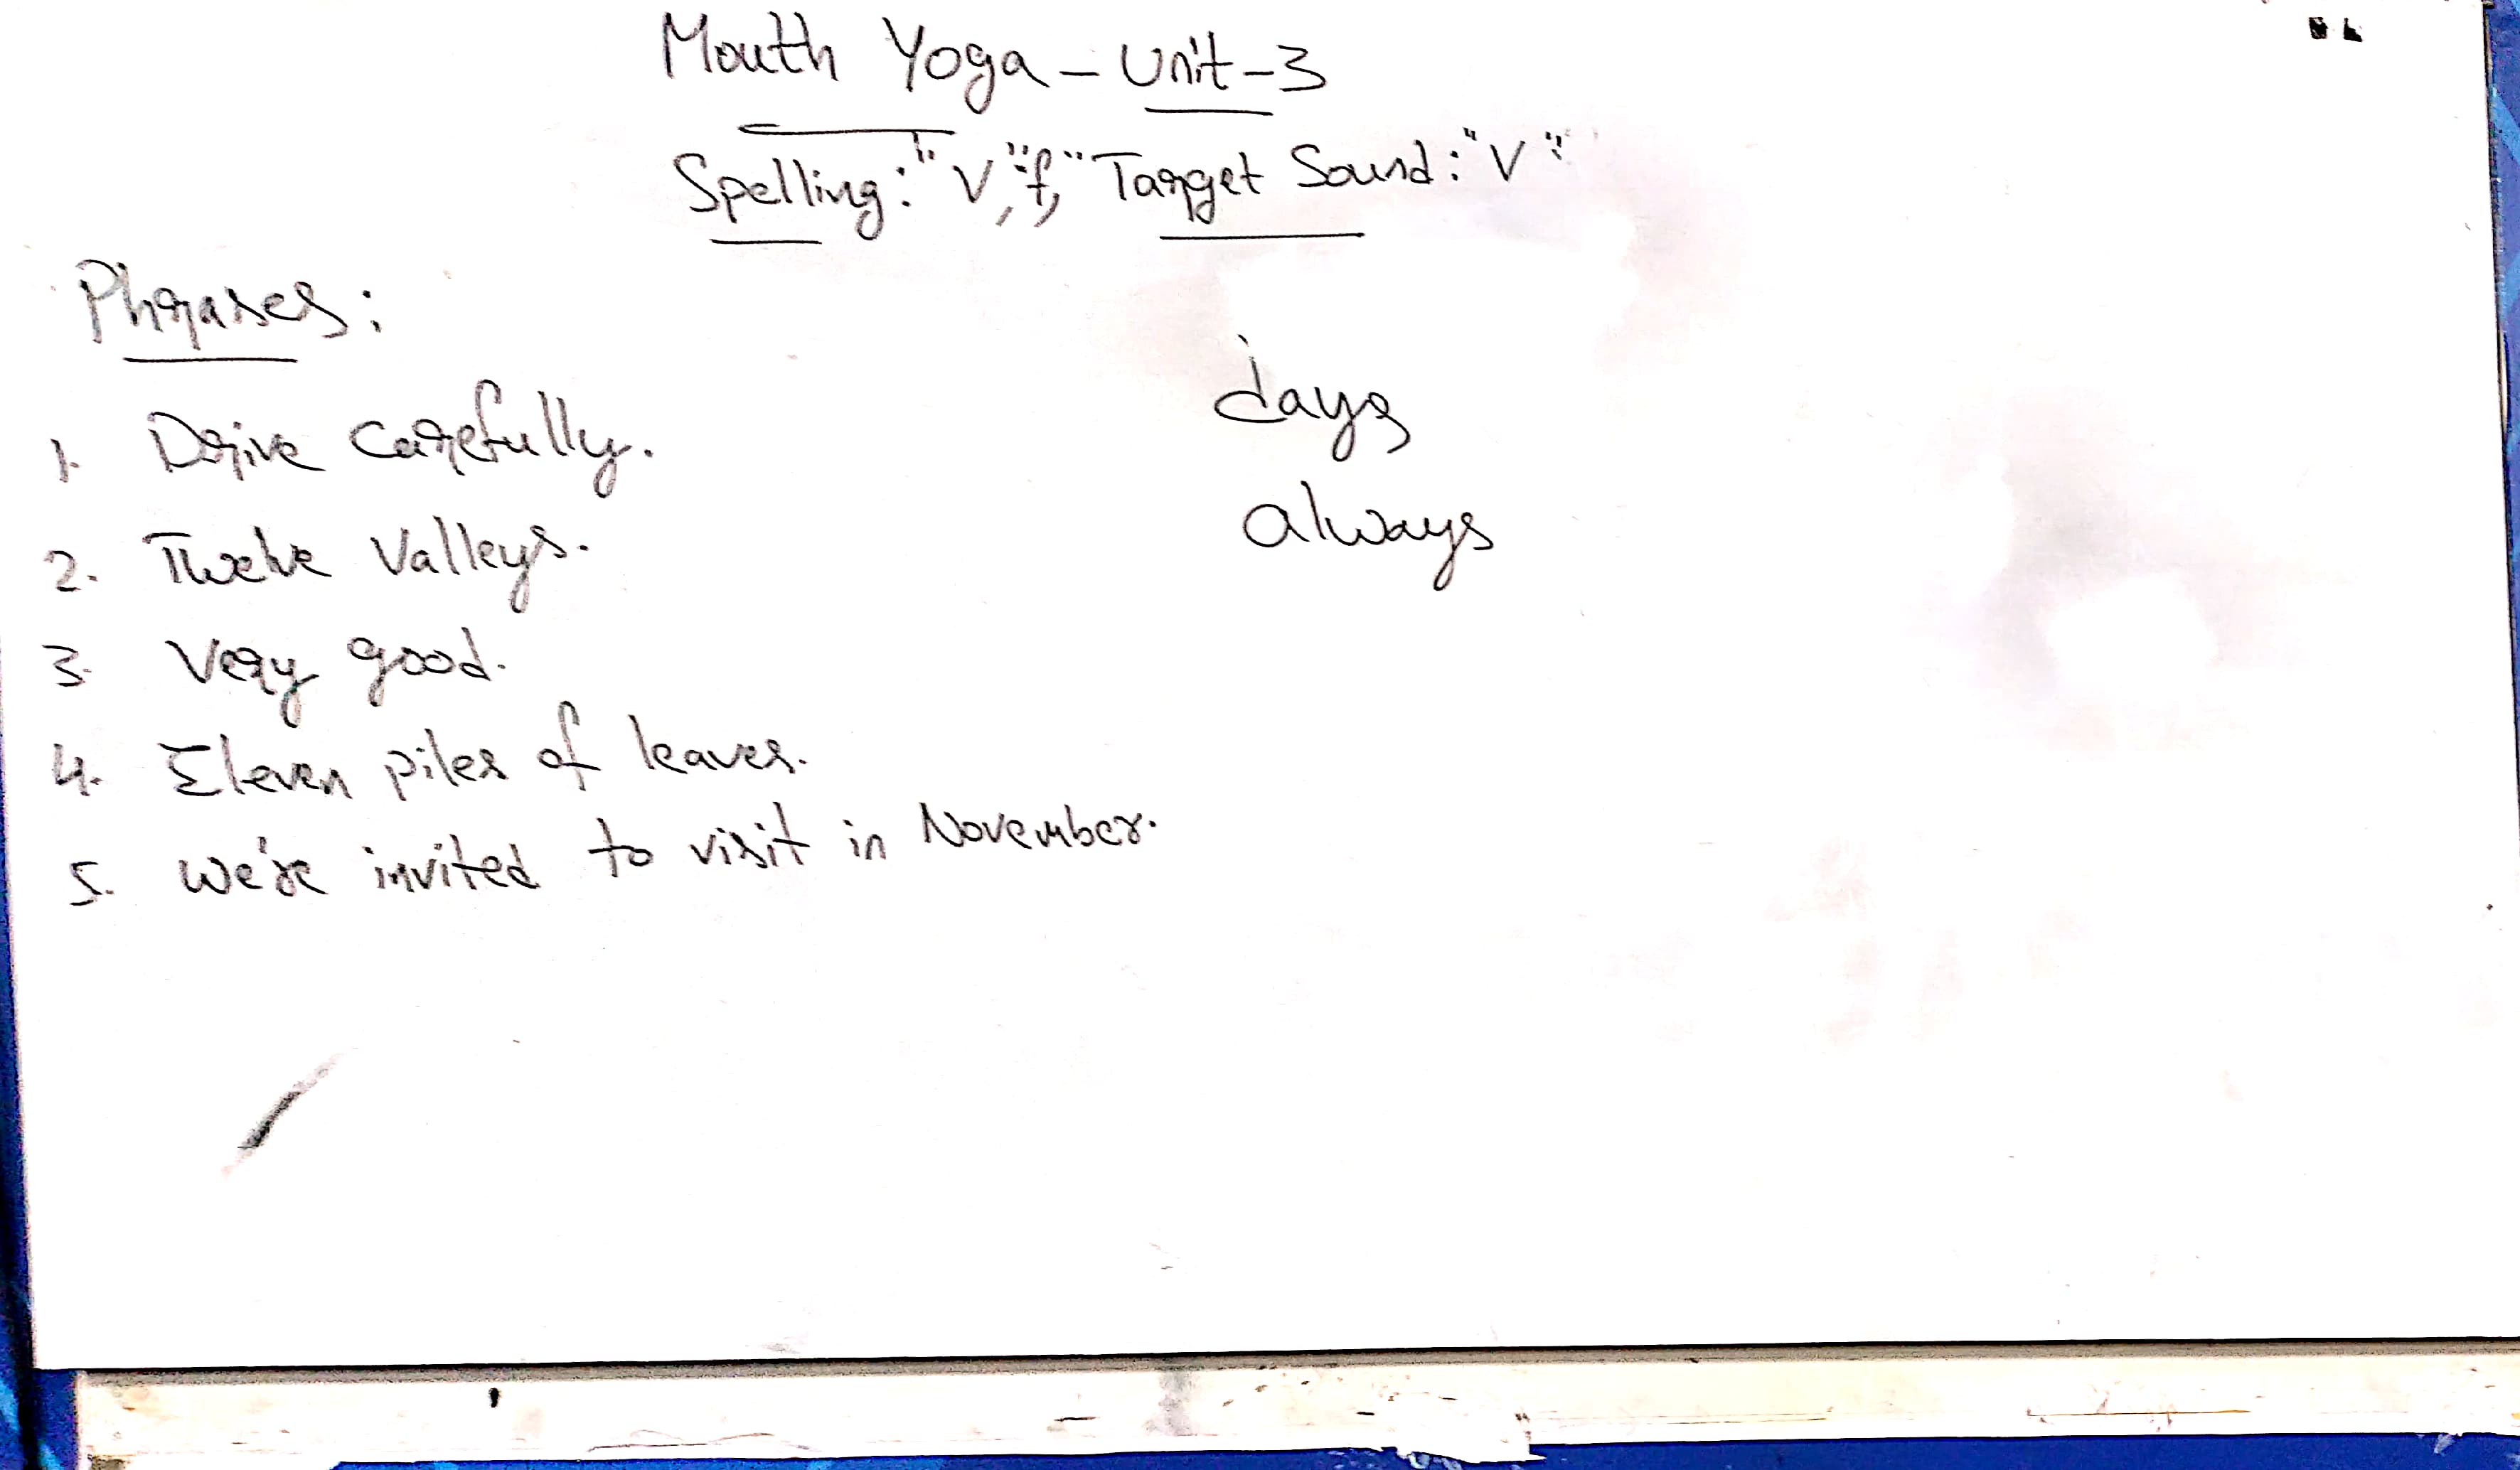 Mouth Yoga - Unit-3
Spelling: "V", "f," Target Sound: "V"
Phrases:
1. Drive carefully.
2. Twelve Valleys.
3. Very good.
4. Eleven piles of leaves.
5. We're invited to visit in November.
days
always